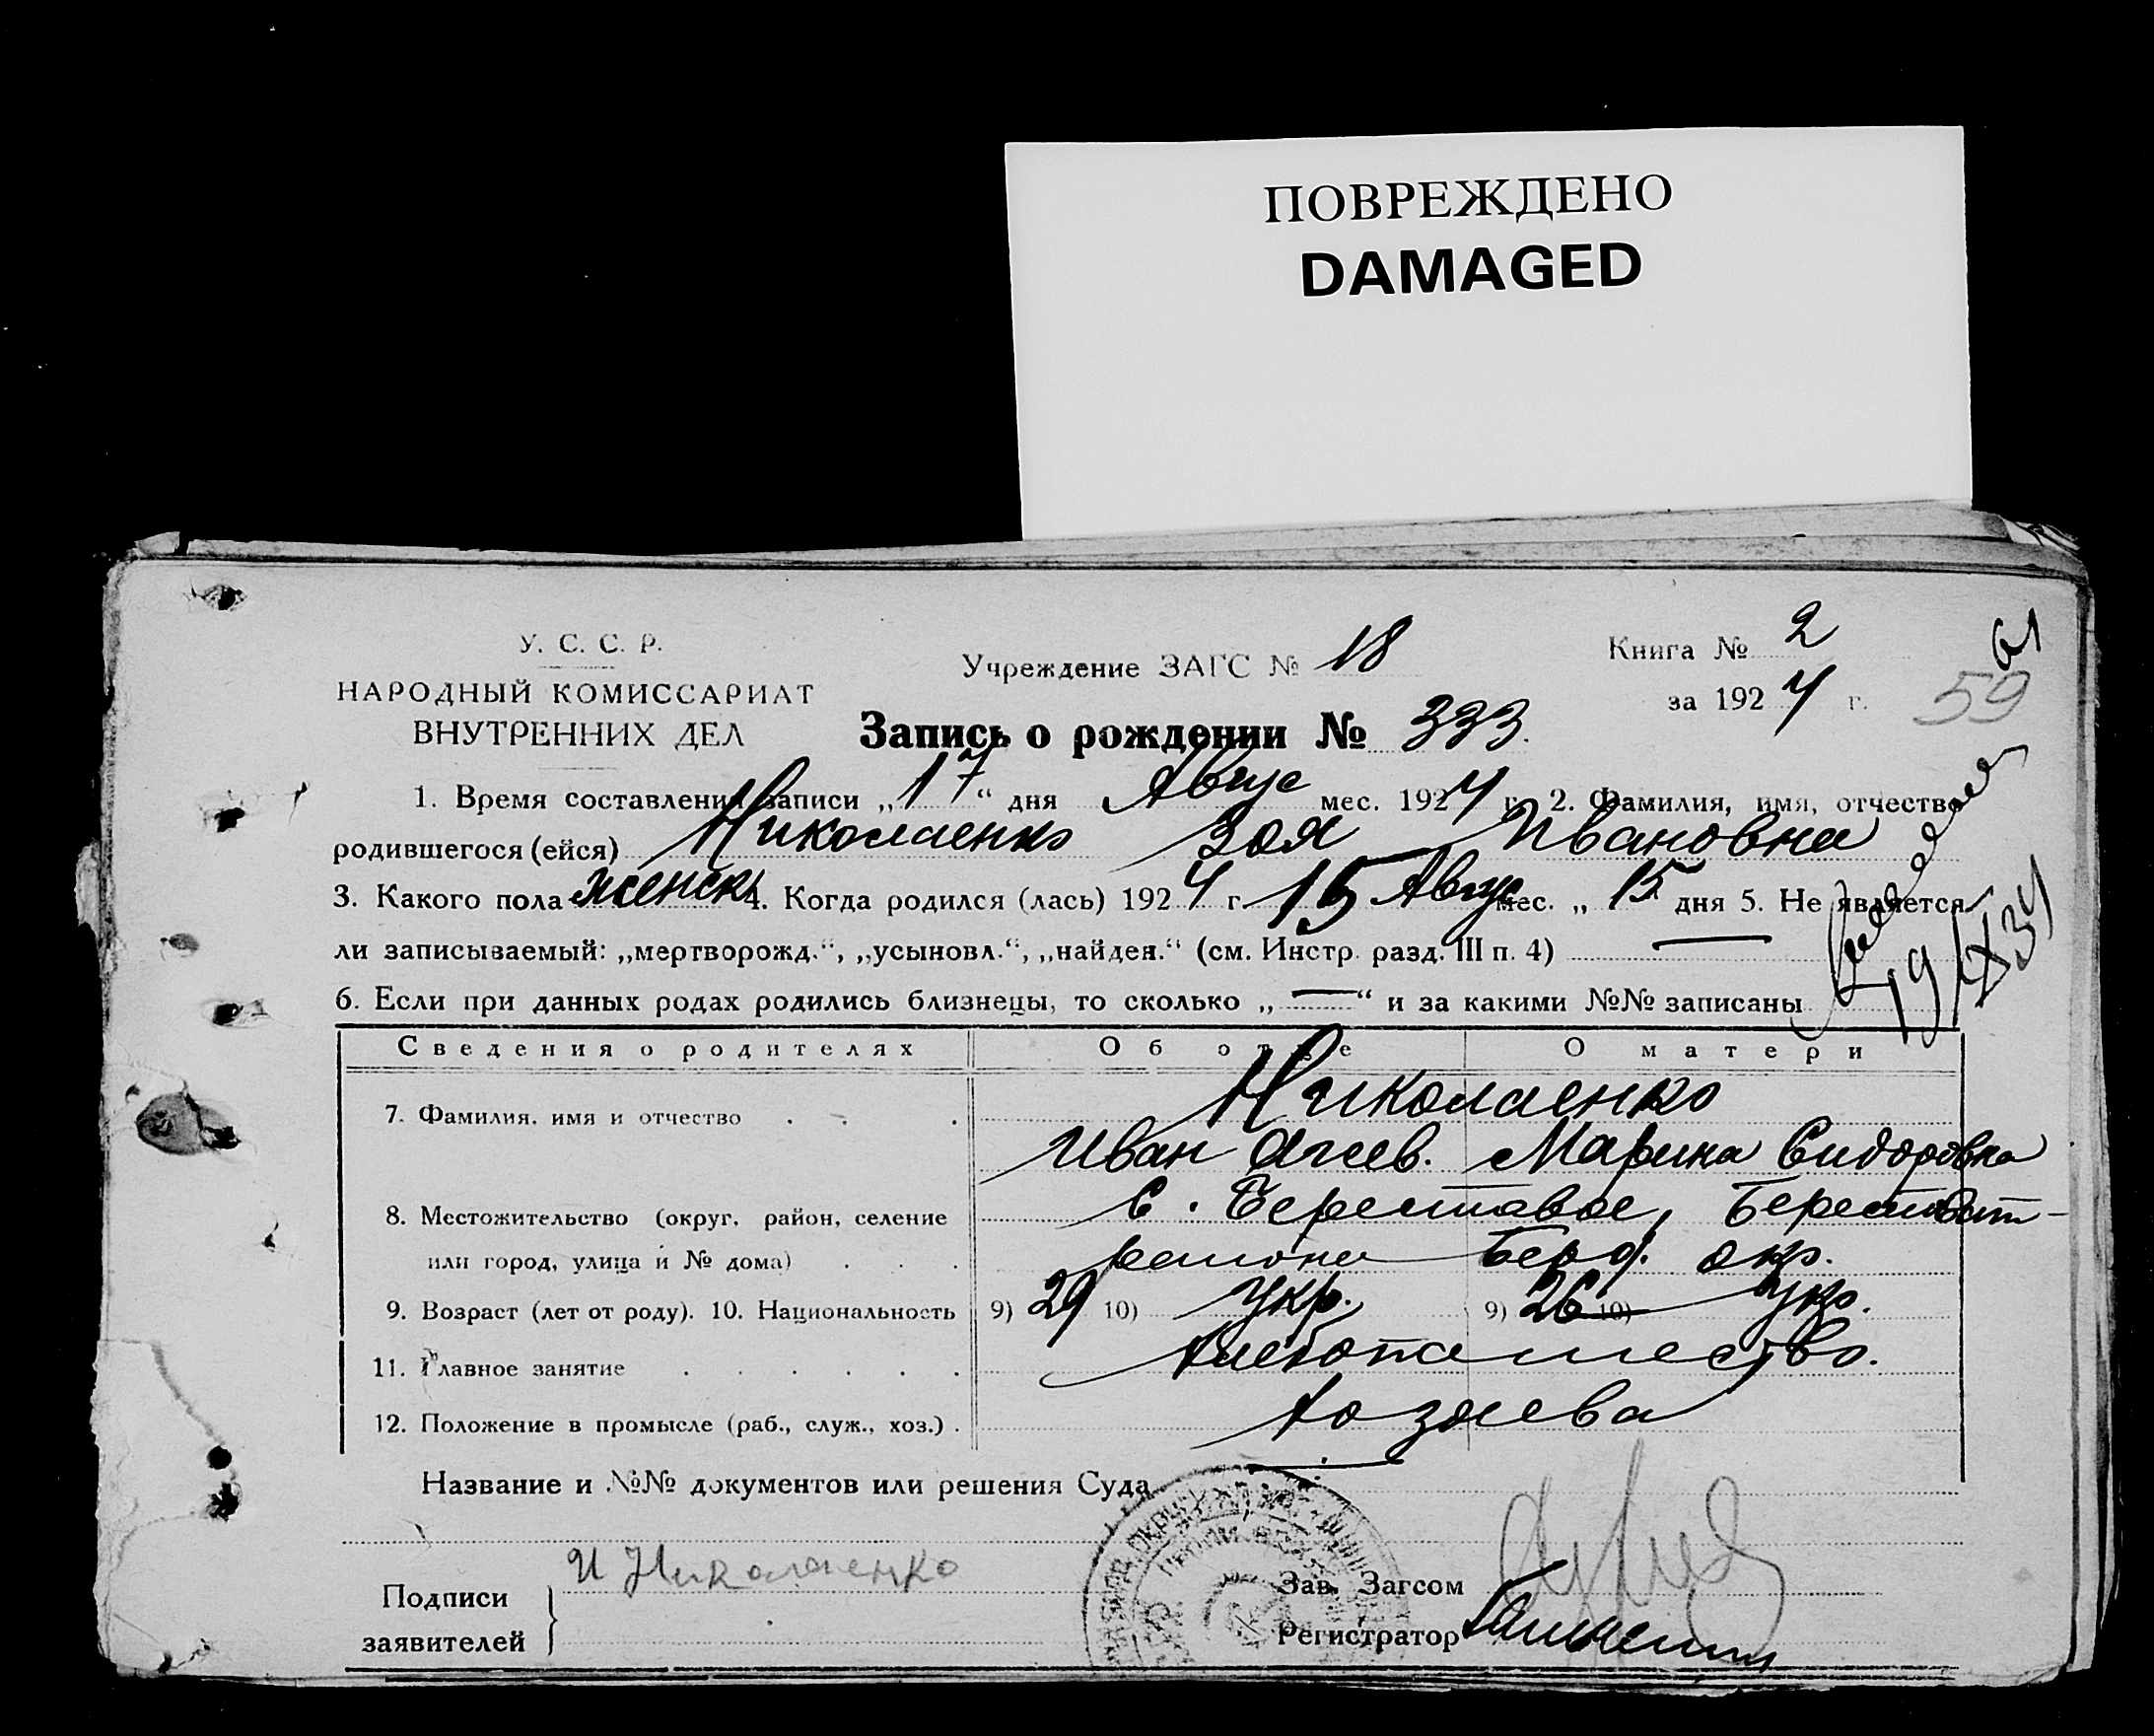 ПОВРЕЖДЕНО
DAMAGED
У. С. С. Р.
НАРОДНЫЙ КОМИССАРИАТ
ВНУТРЕННИХ ДЕЛ
Учреждение ЗАГС № 18
Книга № 2
за 1924 г.
61
59
Запись о рождении № 333.
1. Время составления записи „17“ дня Авгус мес. 1924 г. 2. Фамилия, имя, отчество
родившегося (ейся) Николаенко Зоя Ивановна
3. Какого пола женск 4. Когда родился (лась) 1924 г. 15 Авгус мес. „15“ дня 5. Не является
ли записываемый: „мертворожд.“, „усыновл.“, „найден.“ (см. Инстр. разд. III п. 4) —
6. Если при данных родах родились близнецы, то сколько „—“ и за какими №№ записаны
19/IX 34
Сведения о родителях Об отце О матери
7. Фамилия, имя и отчество . . . Николаенко
Иван Агеев. Марина Сидоровна
8. Местожительство (округ, район, селение С. Берестовое, Берестоват-
или город, улица и № дома) . . . района Берд. окр.
9. Возраст (лет от роду). 10. Национальность 9) 29 10) Укр. 9) 26 10) Укр.
11. Главное занятие . . . . . . Хлебопашество.
12. Положение в промысле (раб., служ., хоз.) . Хозяева
Название и №№ документов или решения Суда
Подписи
заявителей
И Николаенко
Зав. Загсом
Регистратор